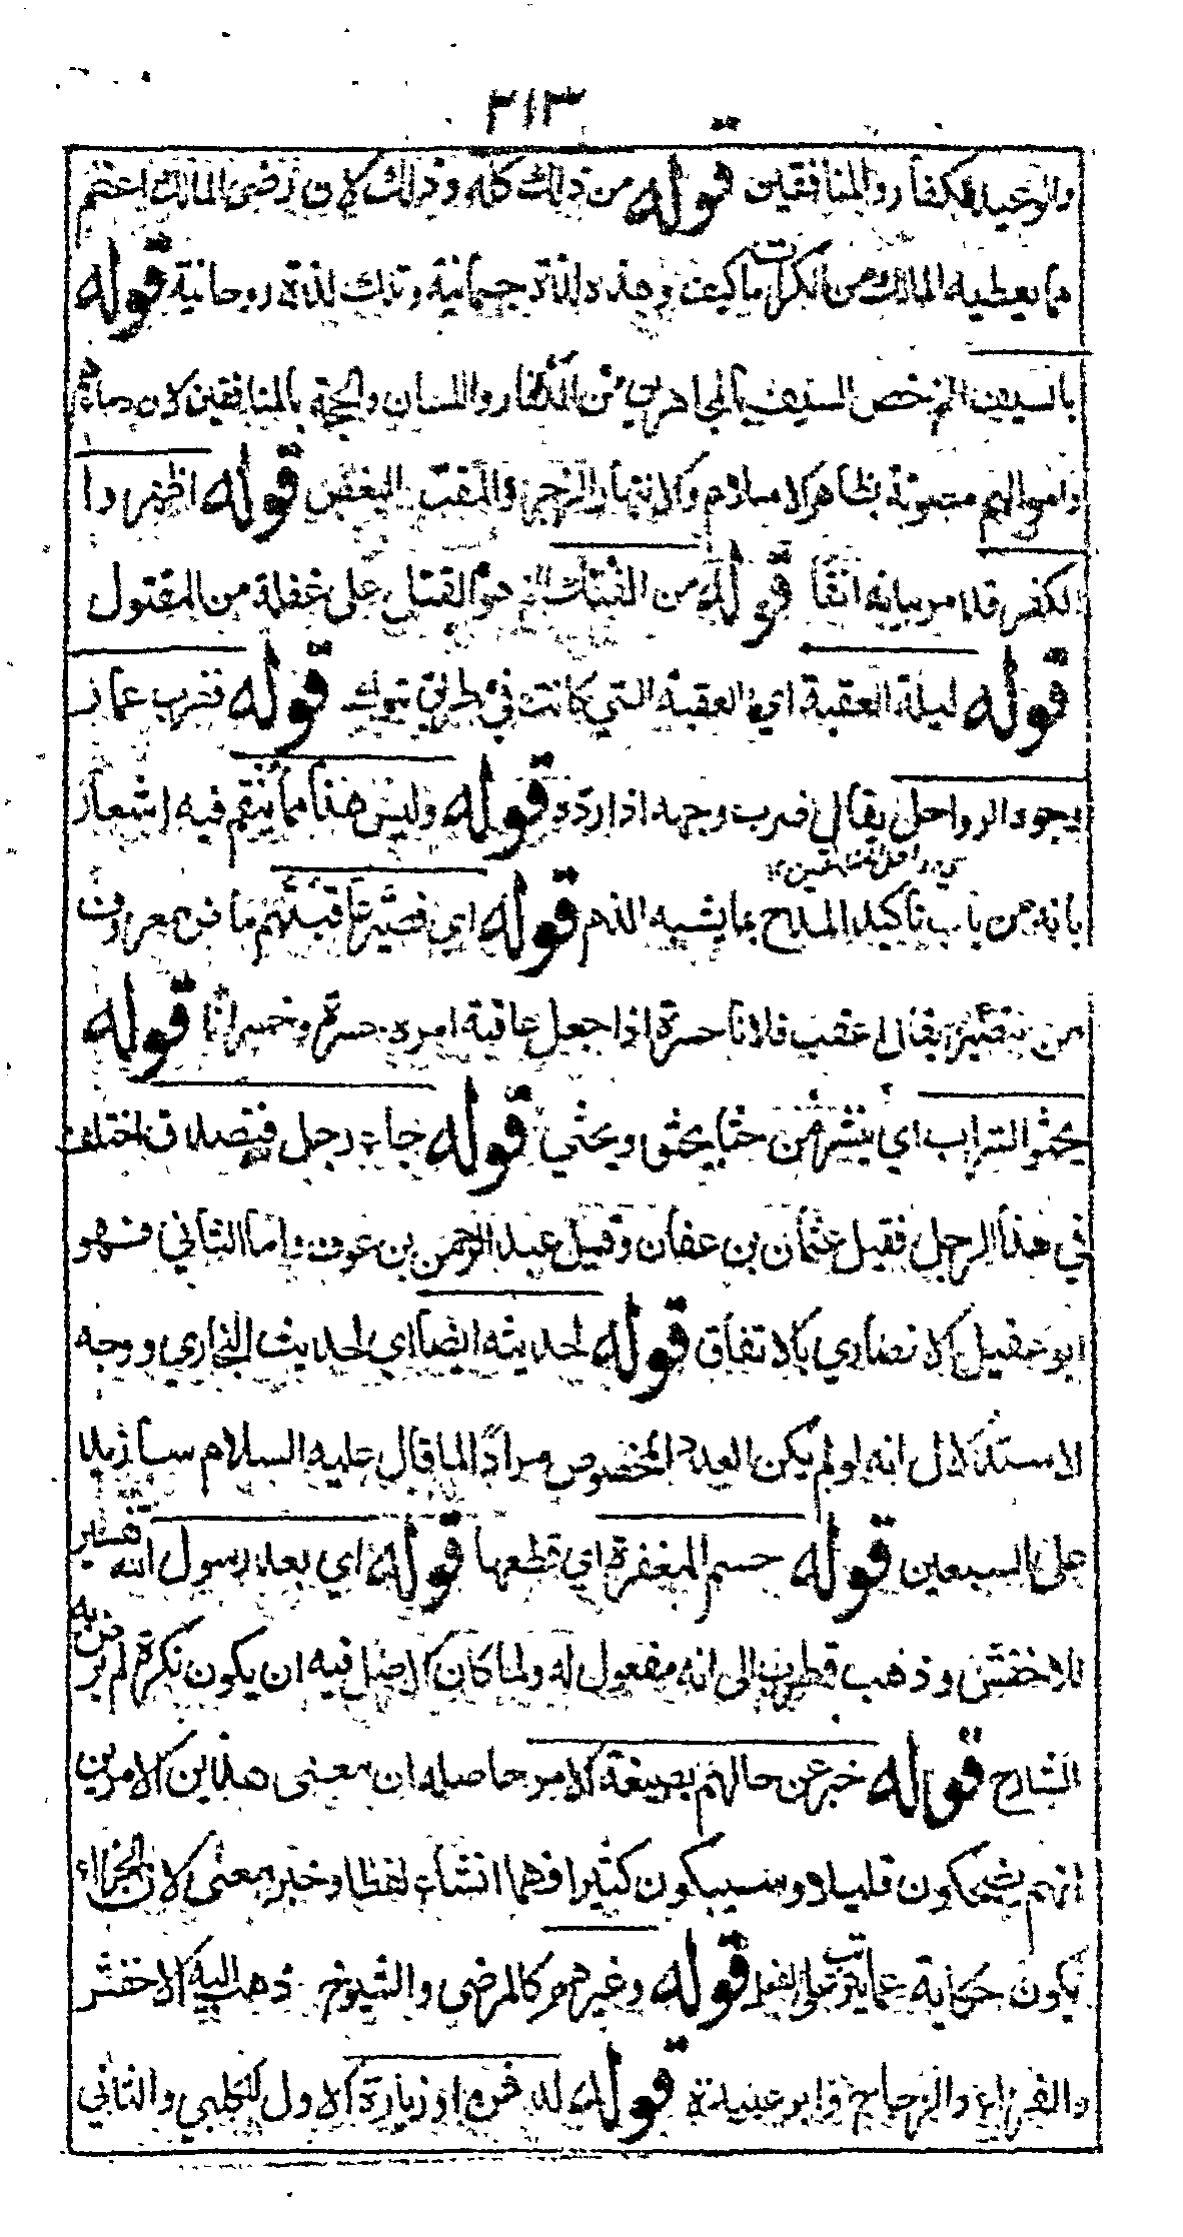 ٣١٣
والوعيد للكفار والمنافقين قوله من ذلك كله وذلك لان رضى المالك اعظم
ما يعطيه المالك من الكرامات كيف وهذه لذة جسمانية وتلك لذة روحانية قوله
بالسيف الخ خص السيف بالمجاهرين من الكفار واللسان والحجة بالمنافقين لان دماءهم
واموالهم مصونة بظاهر الاسلام والانتهار الزجر والمقت البغض قوله اظهروا
الكفر قد مر بيانه انفا قوله من الفتك الخ هو القتل على غفلة من المقتول
قوله ليلة العقبة اي العقبة التي كانت في طريق تبوك قوله فضرب عمار
وجوه الرواحل يقال ضرب وجهه اذا رده قوله وليس هذا مما ينقم فيه اشعار
اي رواحل المنافقين ١٢
بانه من باب تأكيد المدح بما يشبه الذم قوله اي فصير عاقبتهم ماخوذ معروف
من يقال اعقب فلانا حسرة اذا جعل عاقبة امره حسرة وخسرانا قوله
يحثو التراب اي ينثر من حثا يحثو ويحثي قوله جاء رجل فتصدق اختلف
في هذا الرجل فقيل عثمان بن عفان وقيل عبد الرحمن بن عوف واما الثاني فهو
ابو عقيل الانصاري بالاتفاق قوله لحديثه ايضا اي لحديث البخاري ووجه
الاستدلال انه لو لم يكن العدد المخصوص مرادا لما قال عليه السلام سازيد
على السبعين قوله حسم المغفرة اي قطعها قوله اي بعد رسول الله تفسير
للاخفش وذهب قطرب الى انه مفعول له ولما كان الاصل فيه ان يكون نكرة لم يرض به
الشارح قوله خبر عن حالهم بصيغة الامر حاصله ان معنى هذين الامرين
انهم يضحكون قليلا وسيبكون كثيرا فهما انشاء لفظا وخبر معنى لان الجزاء
يكون حكاية عما يترتب على الفعل قوله وغيرهم كالمرضى والشيوخ ذهب اليه الاخفش
والفراء والزجاج وابو عبيدة قوله لد فن او زيارة الاول للكلبي والثاني